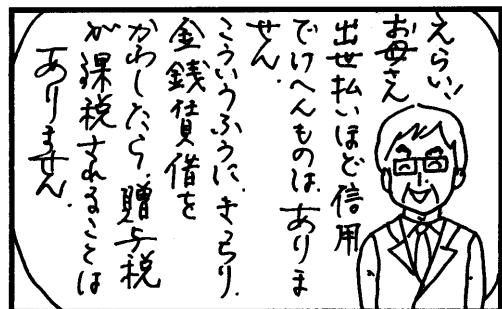 えらい!!
お母さん
出世払いほど信用
でけへんものは、ありま
せん。
こういうふうに、きっちり、
金銭貸借を
かわしたら、贈与税
が課税されることは
ありません。